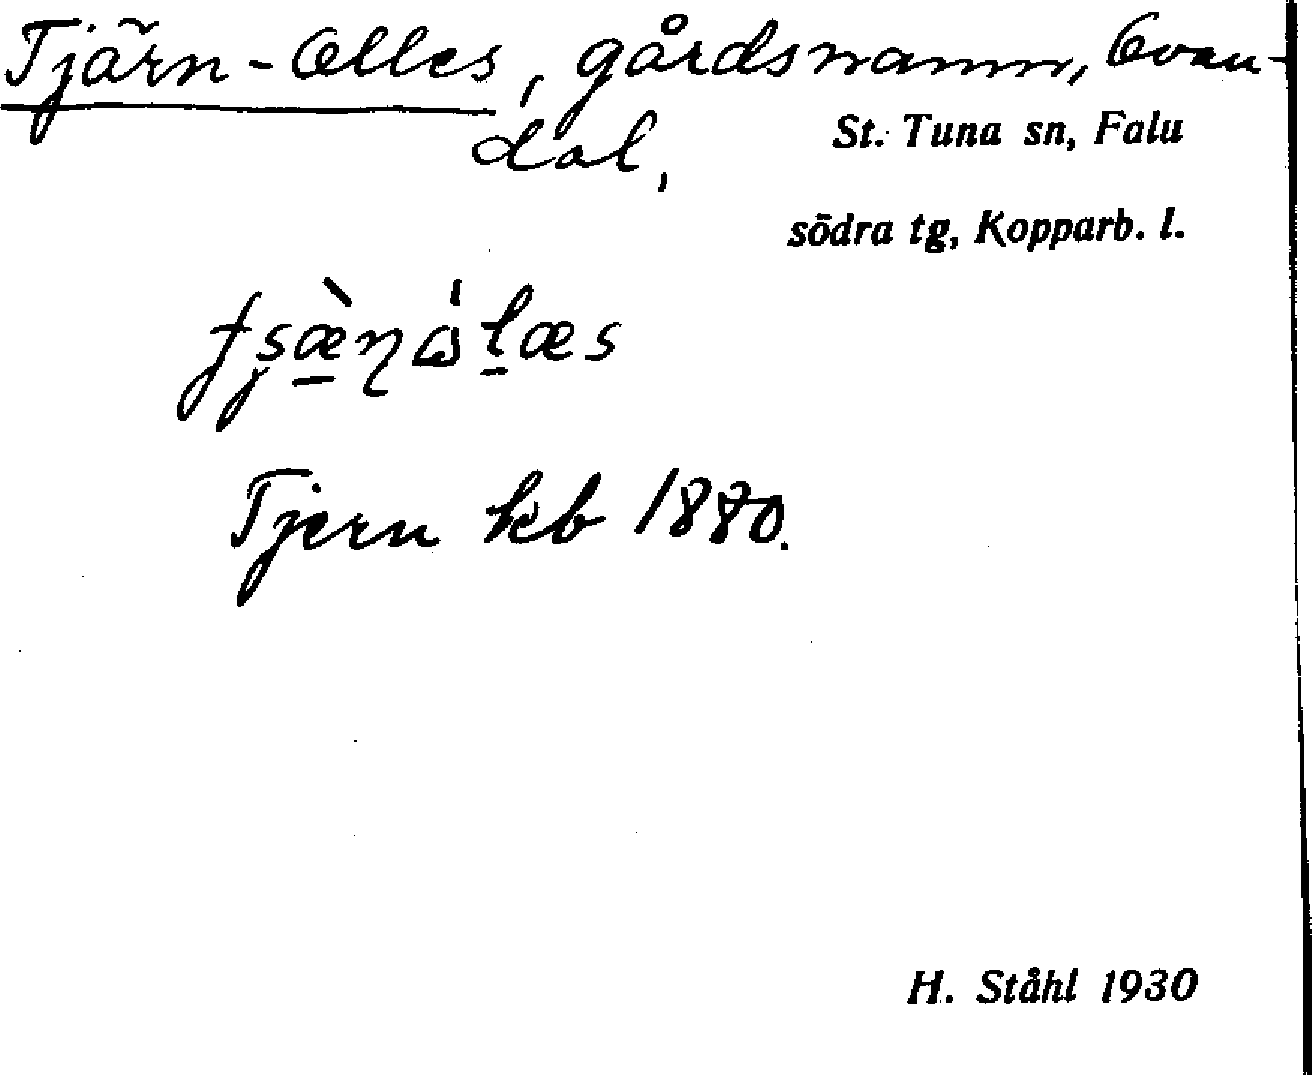 Tjärn-Olles, gårdsnamn, Ovan-
dal,
St. Tuna sn, Falu
södra tg, Kopparb. l.
Tjern kb 1880.
H. Ståhl 1930